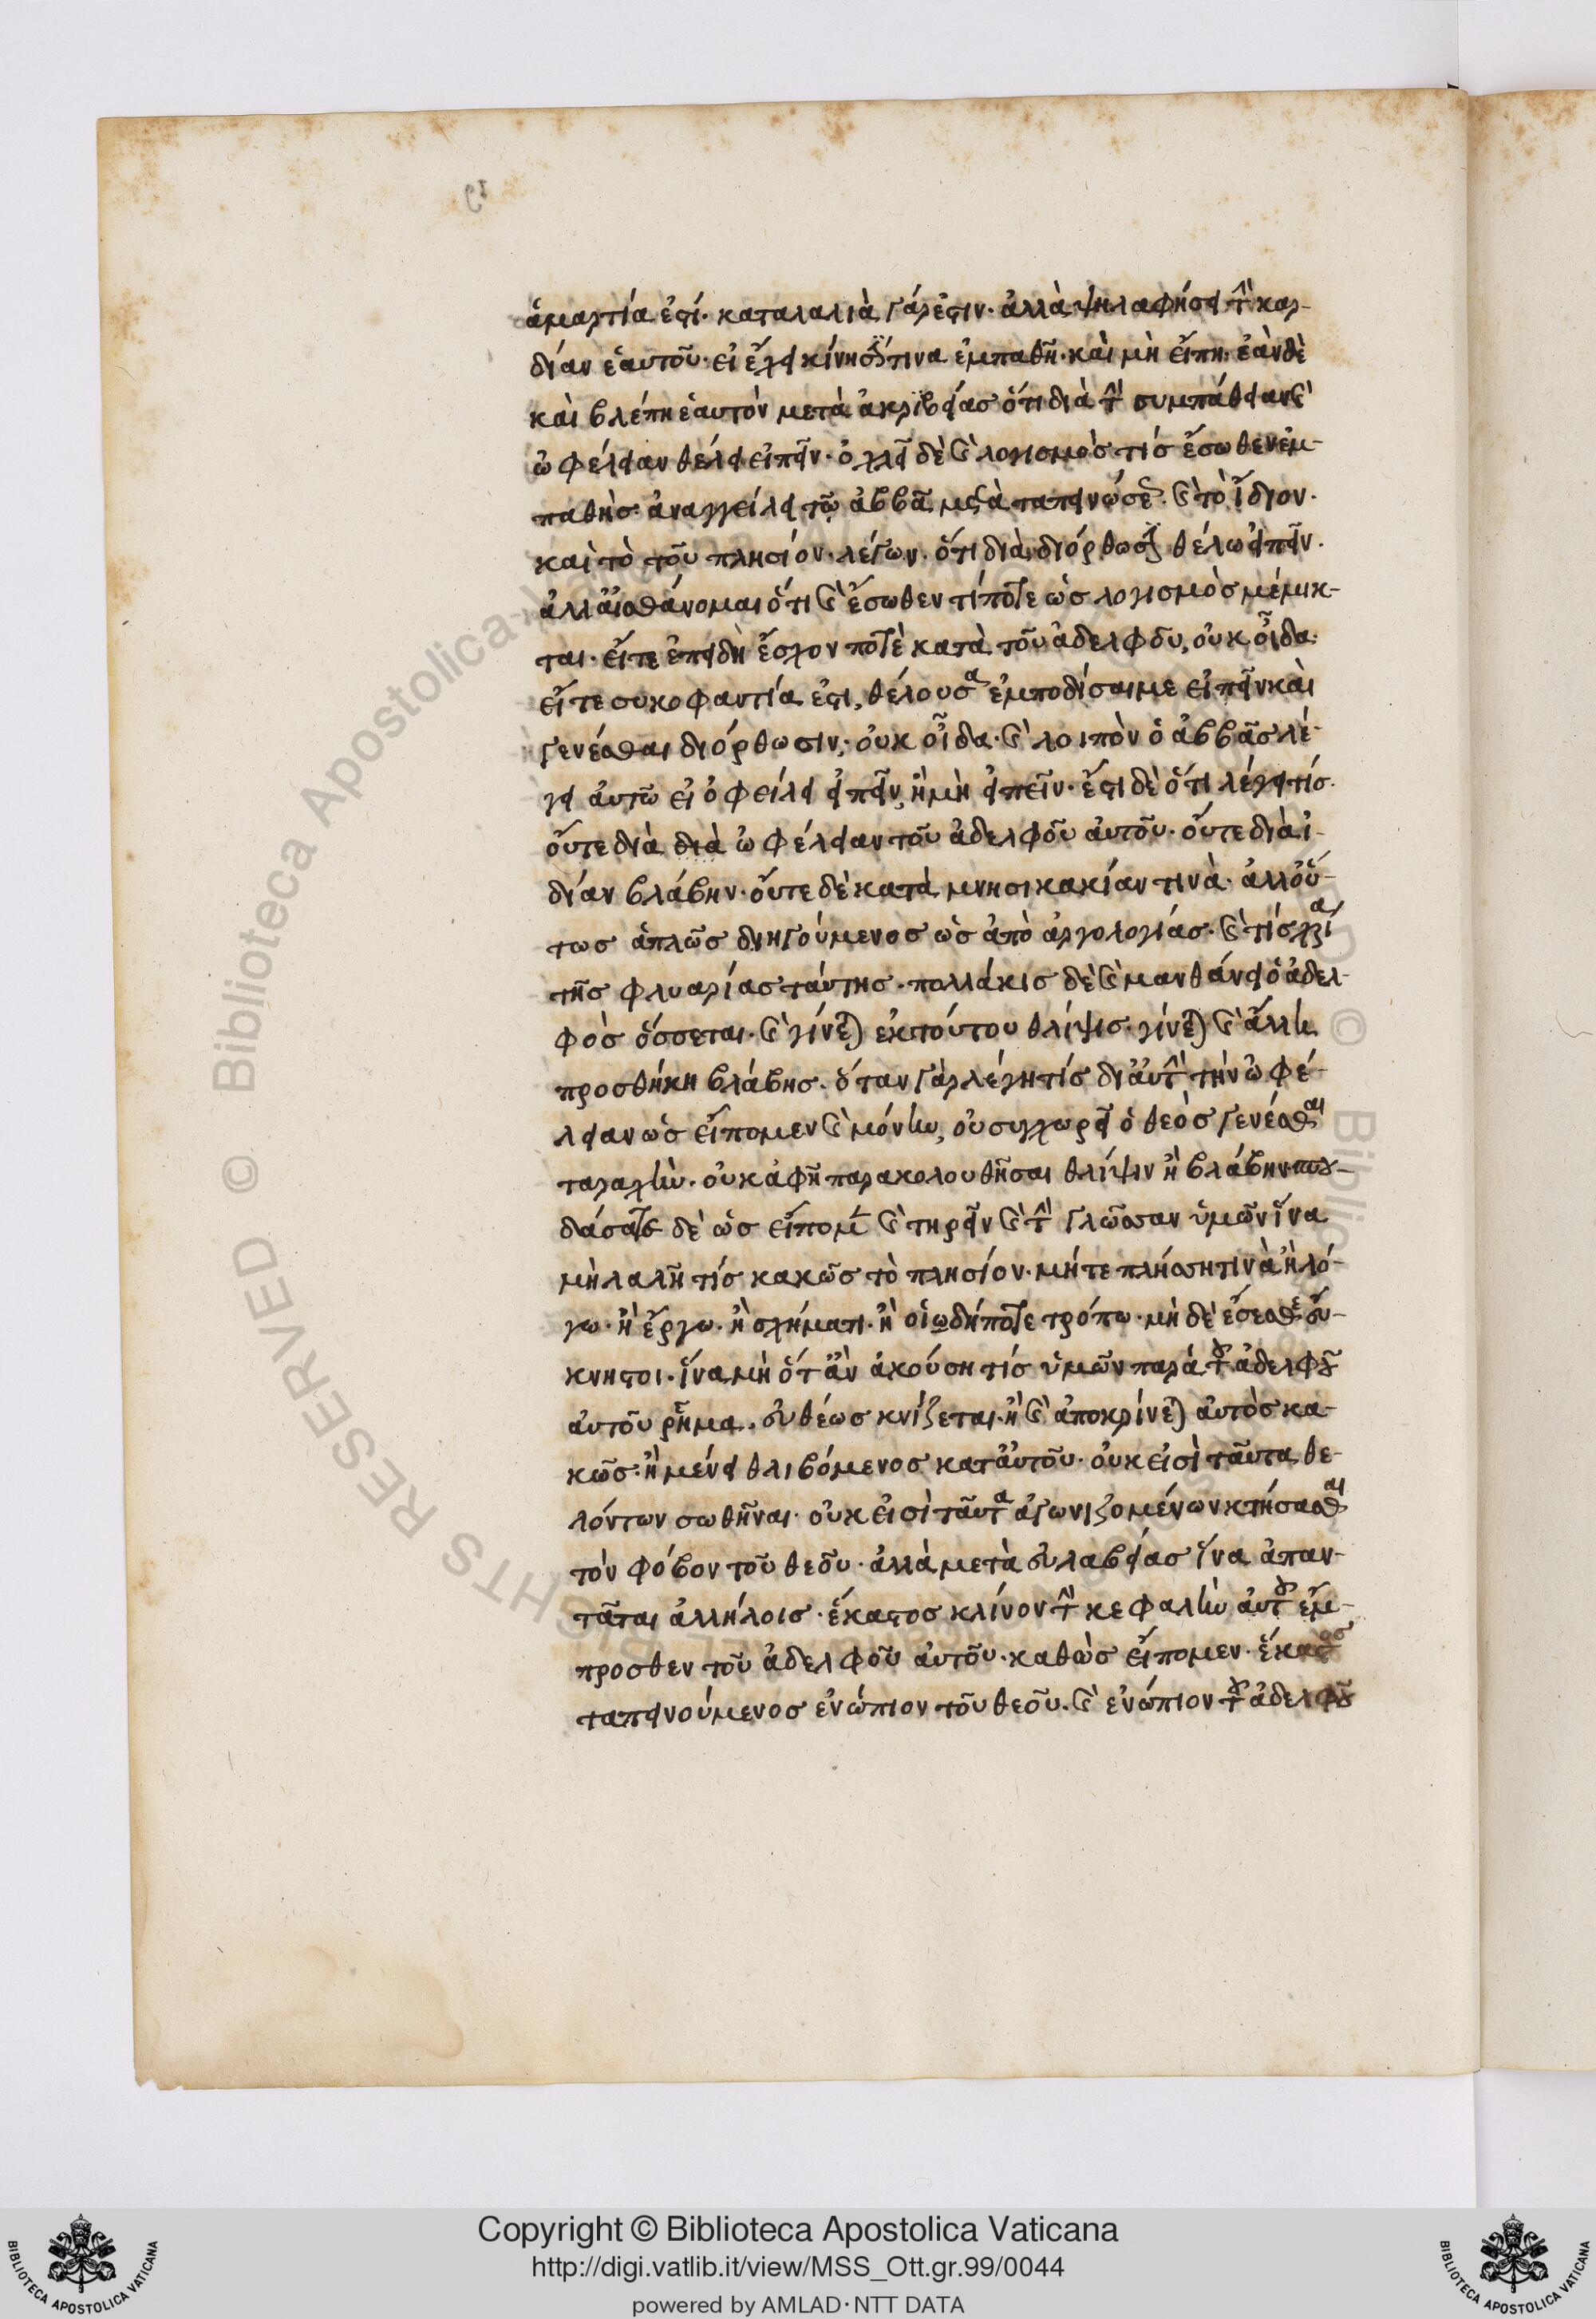 ἁμαρτία ἐστί· καταλαλιὰ γάρ ἐστιν· ἀλλὰ ψηλαφήσει τὴν καρ-
δίαν ἑαυτοῦ· εἰ ἔχει κίνησίν τινα ἐμπαθῆ· καὶ μὴ εἴπη· ἐὰν δὲ
καὶ βλέπη ἑαυτὸν μετὰ ἀκριβείας ὅτι διὰ τὴν συμπάθειαν καὶ
ὠφέλειαν θέλει εἰπεῖν· ὀχλεῖ δὲ καὶ λογισμὸς τίς ἔσωθεν ἐμ-
παθὴς· ἀναγγείλει τῷ ἀββᾶ μετὰ ταπεινώσεως καὶ τὸ ἴδιον·
καὶ τὸ τοῦ πλησίον· λέγων· ὅτι διὰ διόρθωσιν θέλω εἰπεῖν·
ἀλλ' αἰσθάνομαι ὅτι καὶ ἔσωθεν τίποτε ὡς λογισμὸς μέμικ-
ται· εἴτε ἐπειδὴ ἔσχον ποτὲ κατὰ τοῦ ἀδελφοῦ, οὐκ οἶδα·
εἴτε συκοφαντία ἐστι, θέλουσα ἐμποδίσαι με εἰπεῖν καὶ
γενέσθαι διόρθωσιν, οὐκ οἶδα· καὶ λοιπὸν ὁ ἀββᾶς λέ-
γει αὐτῶ εἰ ὀφείλει εἰπεῖν, ἢ μὴ εἰπεῖν· ἔστι δὲ ὅτι λέγει τίς·
οὔτε διὰ διὰ ὠφέλειαν τοῦ ἀδελφοῦ αὐτοῦ· οὔτε διὰ ἰ-
δίαν βλάβην· οὔτε δὲ κατὰ μνησικακίαν τινὰ· ἀλλ' οὕ-
τως ἁπλῶς διηγούμενος ὡς ἀπὸ ἀργολογίας· καὶ τίς χρεία
τῆς φλυαρίας ταύτης· πολλάκις δὲ καὶ μανθάνει ὁ ἀδελ-
φὸς ταράσσεται· καὶ γίνεται ἐκ τούτου θλίψις· γίνεται καὶ ἄλλη
προσθήκη βλάβης· ὅταν γὰρ λέγη τίς δι' αὐτὴν τὴν ὠφέ-
λειαν ὡς εἴπομεν καὶ μόνην, οὐ συγχωρεῖ ὁ θεὸς γενέσθαι
ταραχὴν· οὐκ ἀφῆ παρακολουθῆσαι θλίψιν ἢ βλάβην· σπου-
δάσατε δὲ ὡς εἴπομεν καὶ τηρεῖν καὶ τὴν γλῶσσαν ὑμῶν ἵνα
μὴ λαλῆ τίς κακῶς τὸ πλησίον· μήτε πλήσση τινὰ ἢ λό-
γω· ἢ ἔργω· ἢ σχήματι· ἢ οἱωδήποτε τρόπω· μὴ δὲ ἔσεσθε εὐ-
κνηστοι· ἵνα μὴ ὅτ' ἂν ἀκούση τίς ὑμῶν παρὰ τοῦ ἀδελφοῦ
αὐτοῦ ρῆμα· εὐθέως κνίζεται· ἢ καὶ ἀποκρίνεται αὐτὸς κα-
κῶς· ἢ μένει θλιβόμενος κατ' αὐτοῦ· οὐκ εἰσὶ ταῦτα θε-
λόντων σωθῆναι· οὐκ εἰσὶ ταῦτα ἀγωνιζομένων κτήσασθαι
τὸν φόβον τοῦ θεοῦ· ἀλλὰ μετὰ εὐλαβείας ἵνα ἀπαν-
τᾶται ἀλλήλοις· ἕκαστος κλίνον τὴν κεφαλὴν αὐτοῦ ἔμ-
προσθεν τοῦ ἀδελφοῦ αὐτοῦ· καθὼς εἴπομεν· ἕκαστος
ταπεινούμενος ἐνώπιον τοῦ θεοῦ· καὶ ἐνώπιον τοῦ ἀδελφοῦ
Copyright © Biblioteca Apostolica Vaticana
http://digi.vatlib.it/view/MSS_Ott.gr.99/0044
powered by AMLAD·NTT DATA